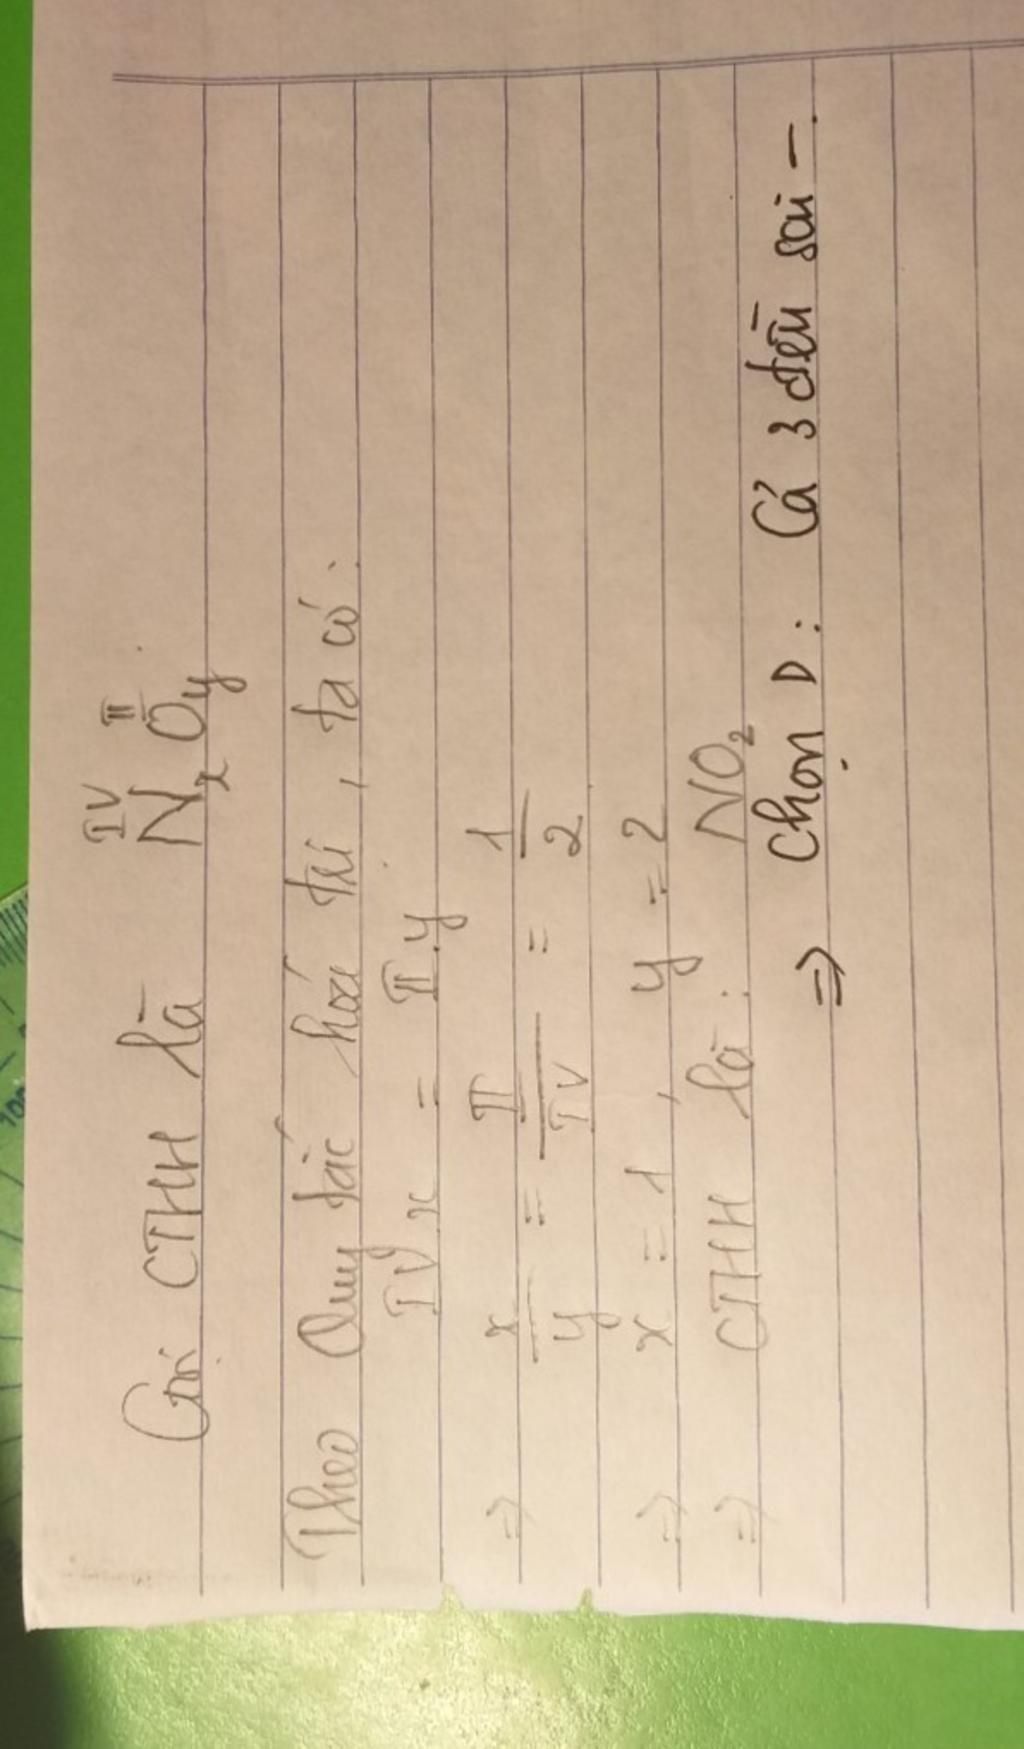 IV II
Gọi CTHH là NxOy
Theo Quy tắc hoá trị, ta có:
IV.x = II.y
⇒ x/y = II/IV = 1/2
⇒ x = 1, y = 2
⇒ CTHH là: NO₂
⇒ Chọn D: Cả 3 đều sai